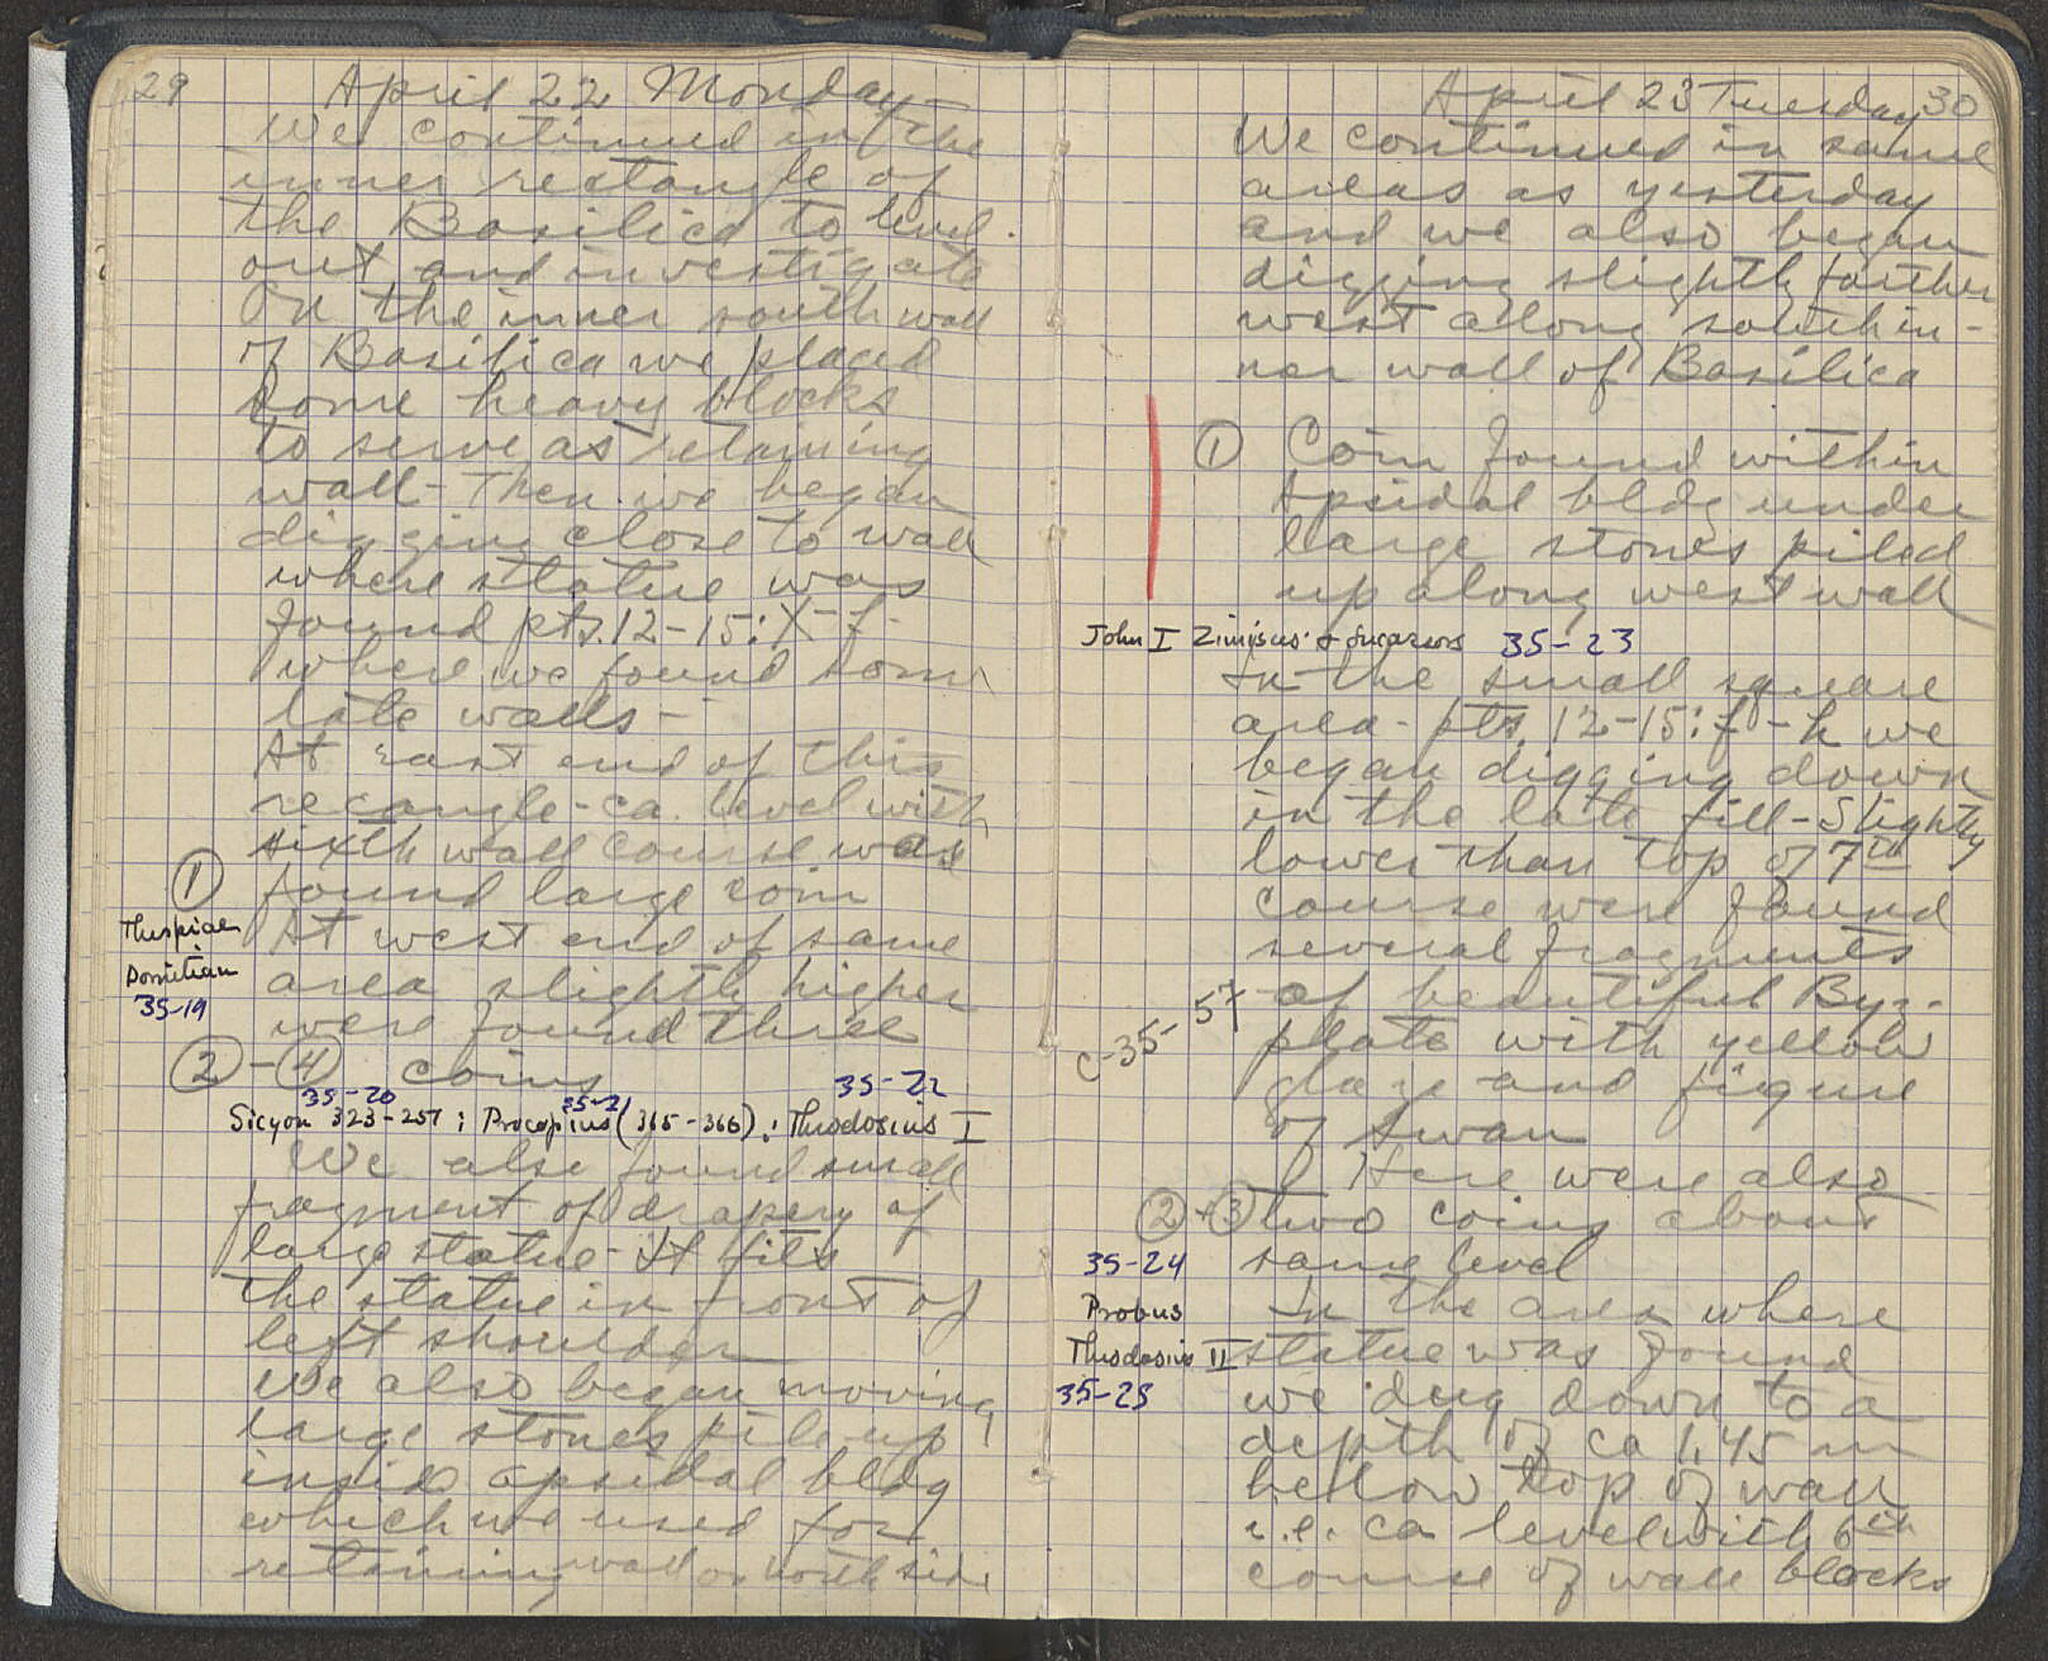 29
April 22 Monday-
We continued in the
inner rectangle of
the Basilica to level
out and investigate
On the inner south wall
of Basilica we placed
some heavy blocks
to serve as retaining
wall - Then we began
digging close to wall
where statue was
found pts. 12-15: X-f-
where we found some
late walls -
At east end of this
recangle - ca. level with
sixth wall course was
① found large coin
Thespiae
Domitian
35-19
At west end of same
area slightly higher
were found three
②-④ coins
35-20 35-21 35-22
Sicyon 323-251 ; Procopius (365-366) ; Theodosius I
We also found small
fragment of drapery of
large statue - It fits
the statue in front of
left shoulder
We also began moving
large stones pile up
inside apsidal bldg
which we used for
retaining wall on north side
April 23 Tuesday 30
We continued in same
areas as yesterday
and we also began
digging slightly farther
west along south in-
ner wall of Basilica
① Coin found within
Apsidal bldg under
large stones piled
up along west wall
John I Zimisces + successors 35-23
In the small square
area - pts. 12-15: f-h we
began digging down
in the late fill - Slightly
lower than top of 7th
course were found
several fragments
C-35-57 of beautiful Byz-
plate with yellow
glaze and figure
of swan
Here were also
②+③ two coins about
same level
35-24
Probus
Theodosius II
35-25
In the area where
statue was found
we dug down to a
depth of ca 1.45 m
below top of wall
i.e. ca level with 6th
course of wall blocks